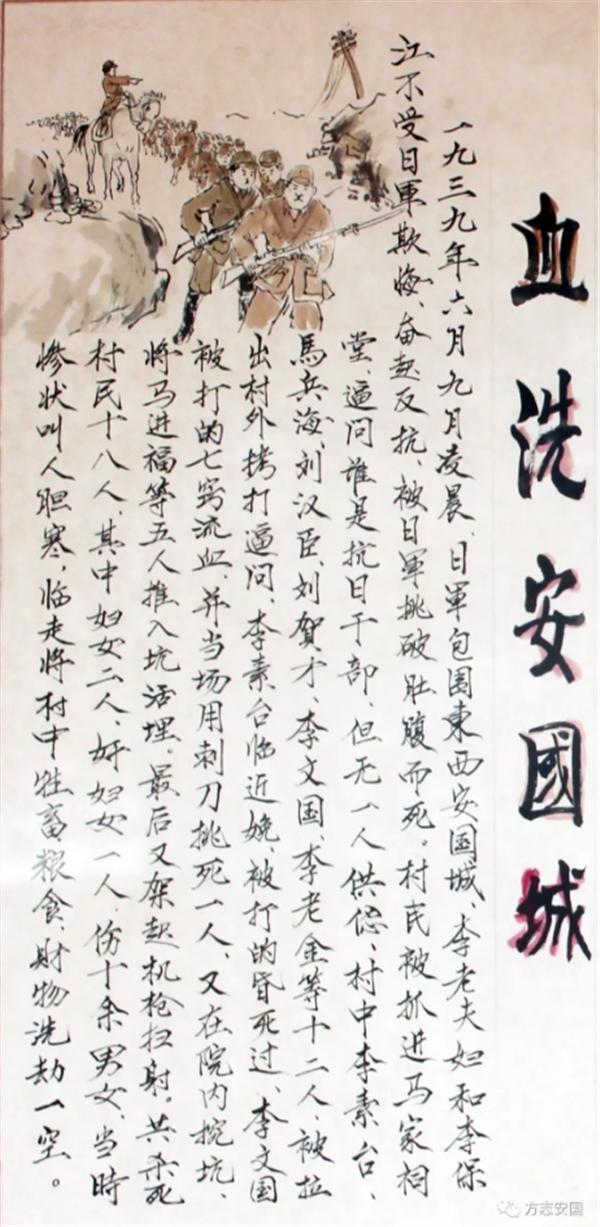 血洗安國城
一九三九年六月九月凌晨、日軍包围東西安国城、李老夫妇和李保
江不受日軍欺侮、奋起反抗、被日軍挑破肚腹而死。村民被抓进马家祠
堂、逼问谁是抗日干部、但无一人供
村中李素台、
馬兵海、刘汉臣、刘贺才、李文国、李老金等十二人、被拉
出村外拷打逼问、李素台临近娩、被打的昏死过、李文国
被打的七窍流血、并当场用刺刀挑死一人、又在院内挖坑、
将马进福等五人推入坑活埋。最后又架起机枪扫射。共杀死
村民十八人、其中妇女二人、奸妇女一人、伤十余男女、当時
惨状叫人胆寒、临走将村中牲畜、粮食、財物洗劫一空。
方志安国